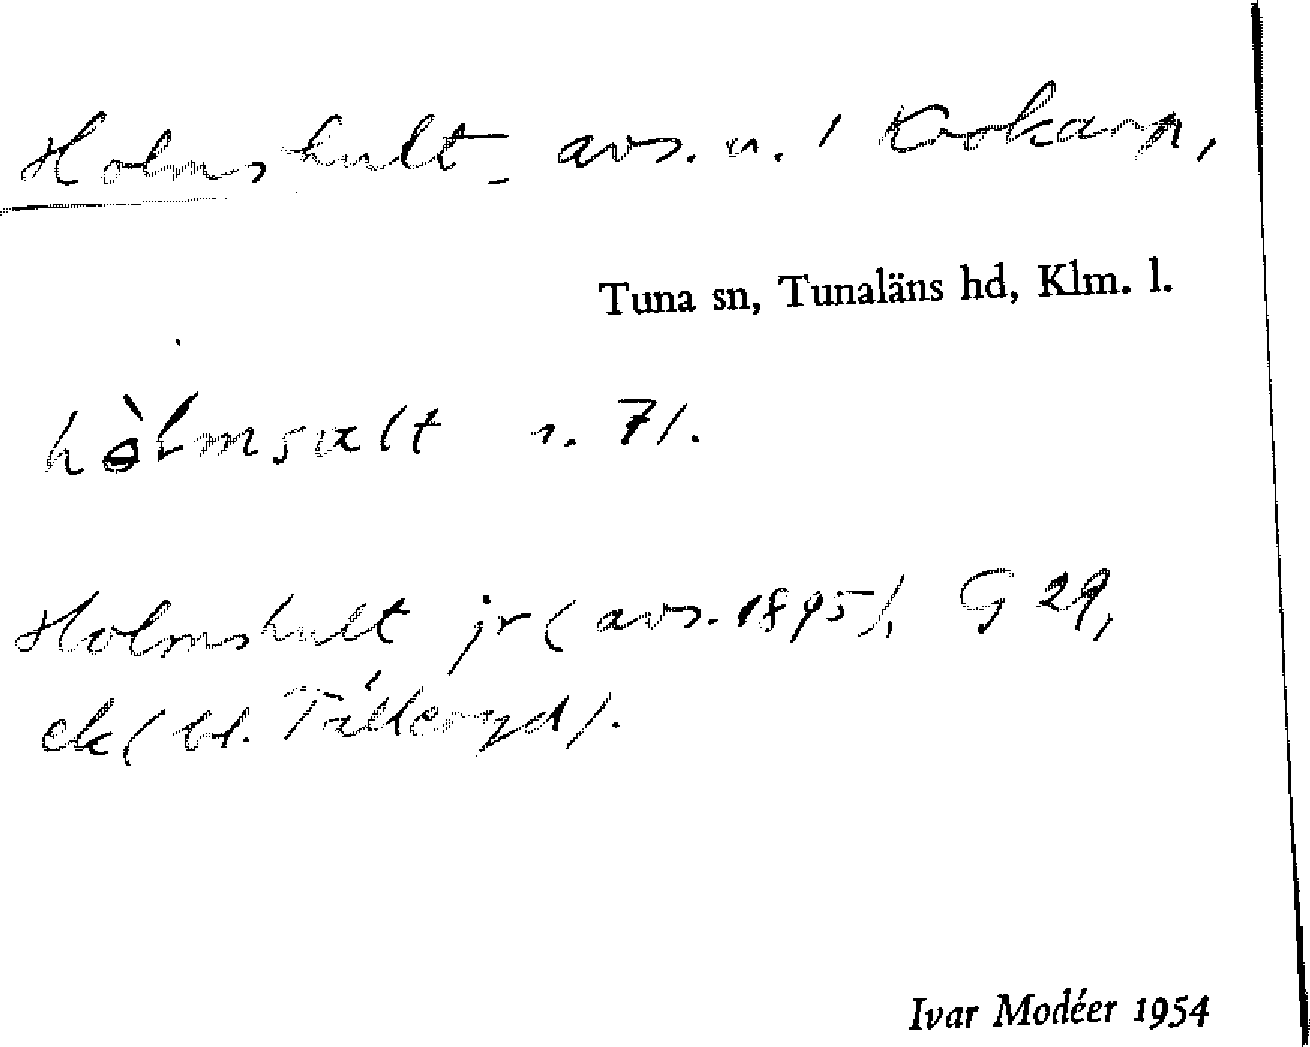 Holmshult, avs. u. 1 Krokarp,
Tuna sn, Tunaläns hd, Klm. l.
hòlmsult s. 71.
Holmshult jr (avs. 1895), G 29,
ek (bl. Tälleryd).
Ivar Modéer 1954